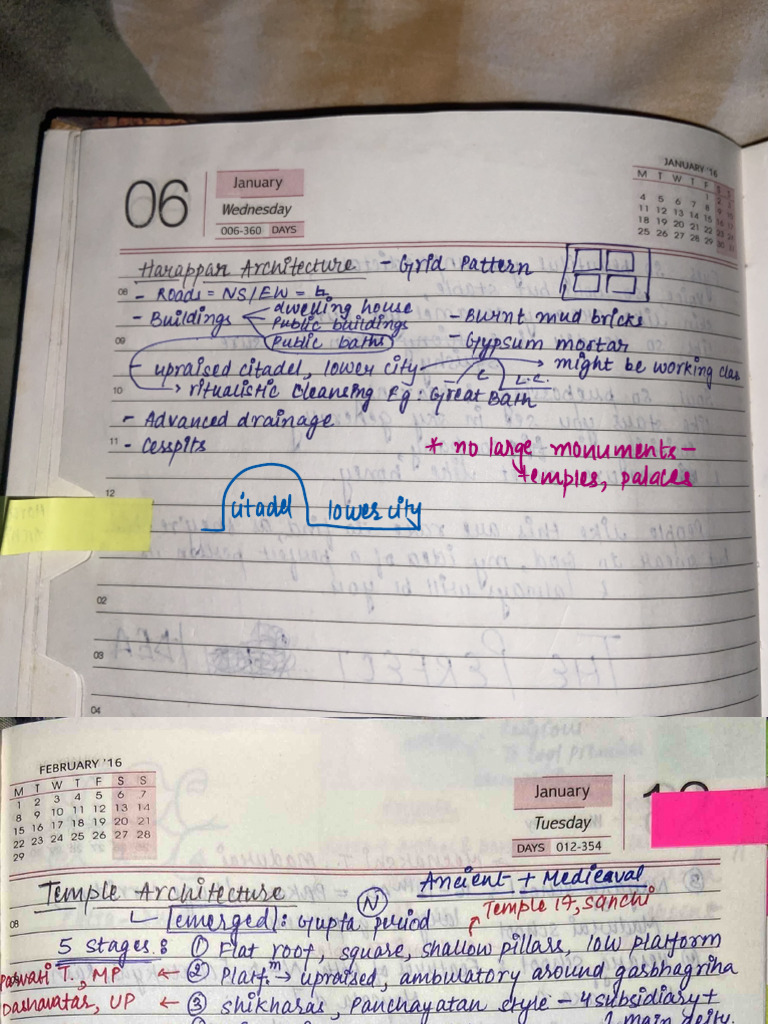 06
January
Wednesday
006-360 DAYS
JANUARY '16
M T W T F S S
1 2 3
4 5 6 7 8 9 10
11 12 13 14 15 16 17
18 19 20 21 22 23 24
25 26 27 28 29 30 31
Harappan Architecture - Grid Pattern
08 - Roads = NS/EW =
- Buildings dwelling house - Burnt mud bricks
Public buildings
09 Public baths - Gypsum mortar
- upraised citadel, lower city → might be working class
C L.C.
10 → ritualistic cleansing Eg: Great Bath
- Advanced drainage
11 - Cesspits * no large monuments -
temples, palaces
12
citadel lower city
02
03
THE PERFECT IDEA
04
FEBRUARY '16
M T W T F S S
1 2 3 4 5 6 7
8 9 10 11 12 13 14
15 16 17 18 19 20 21
22 23 24 25 26 27 28
29
January
Tuesday
DAYS 012-354
Temple Architecture (N) Ancient + Medieaval
08 [emerged]: Gupta period Temple 17, Sanchi
5 stages: ① Flat roof, square, shallow pillars, low platform
Parvati T., MP ← ② Platf.m → upraised, ambulatory around gasbhagriha
Dashavatar, UP ← ③ shikharas, Panchayatan style - 4 subsidiary +
1 main deity.